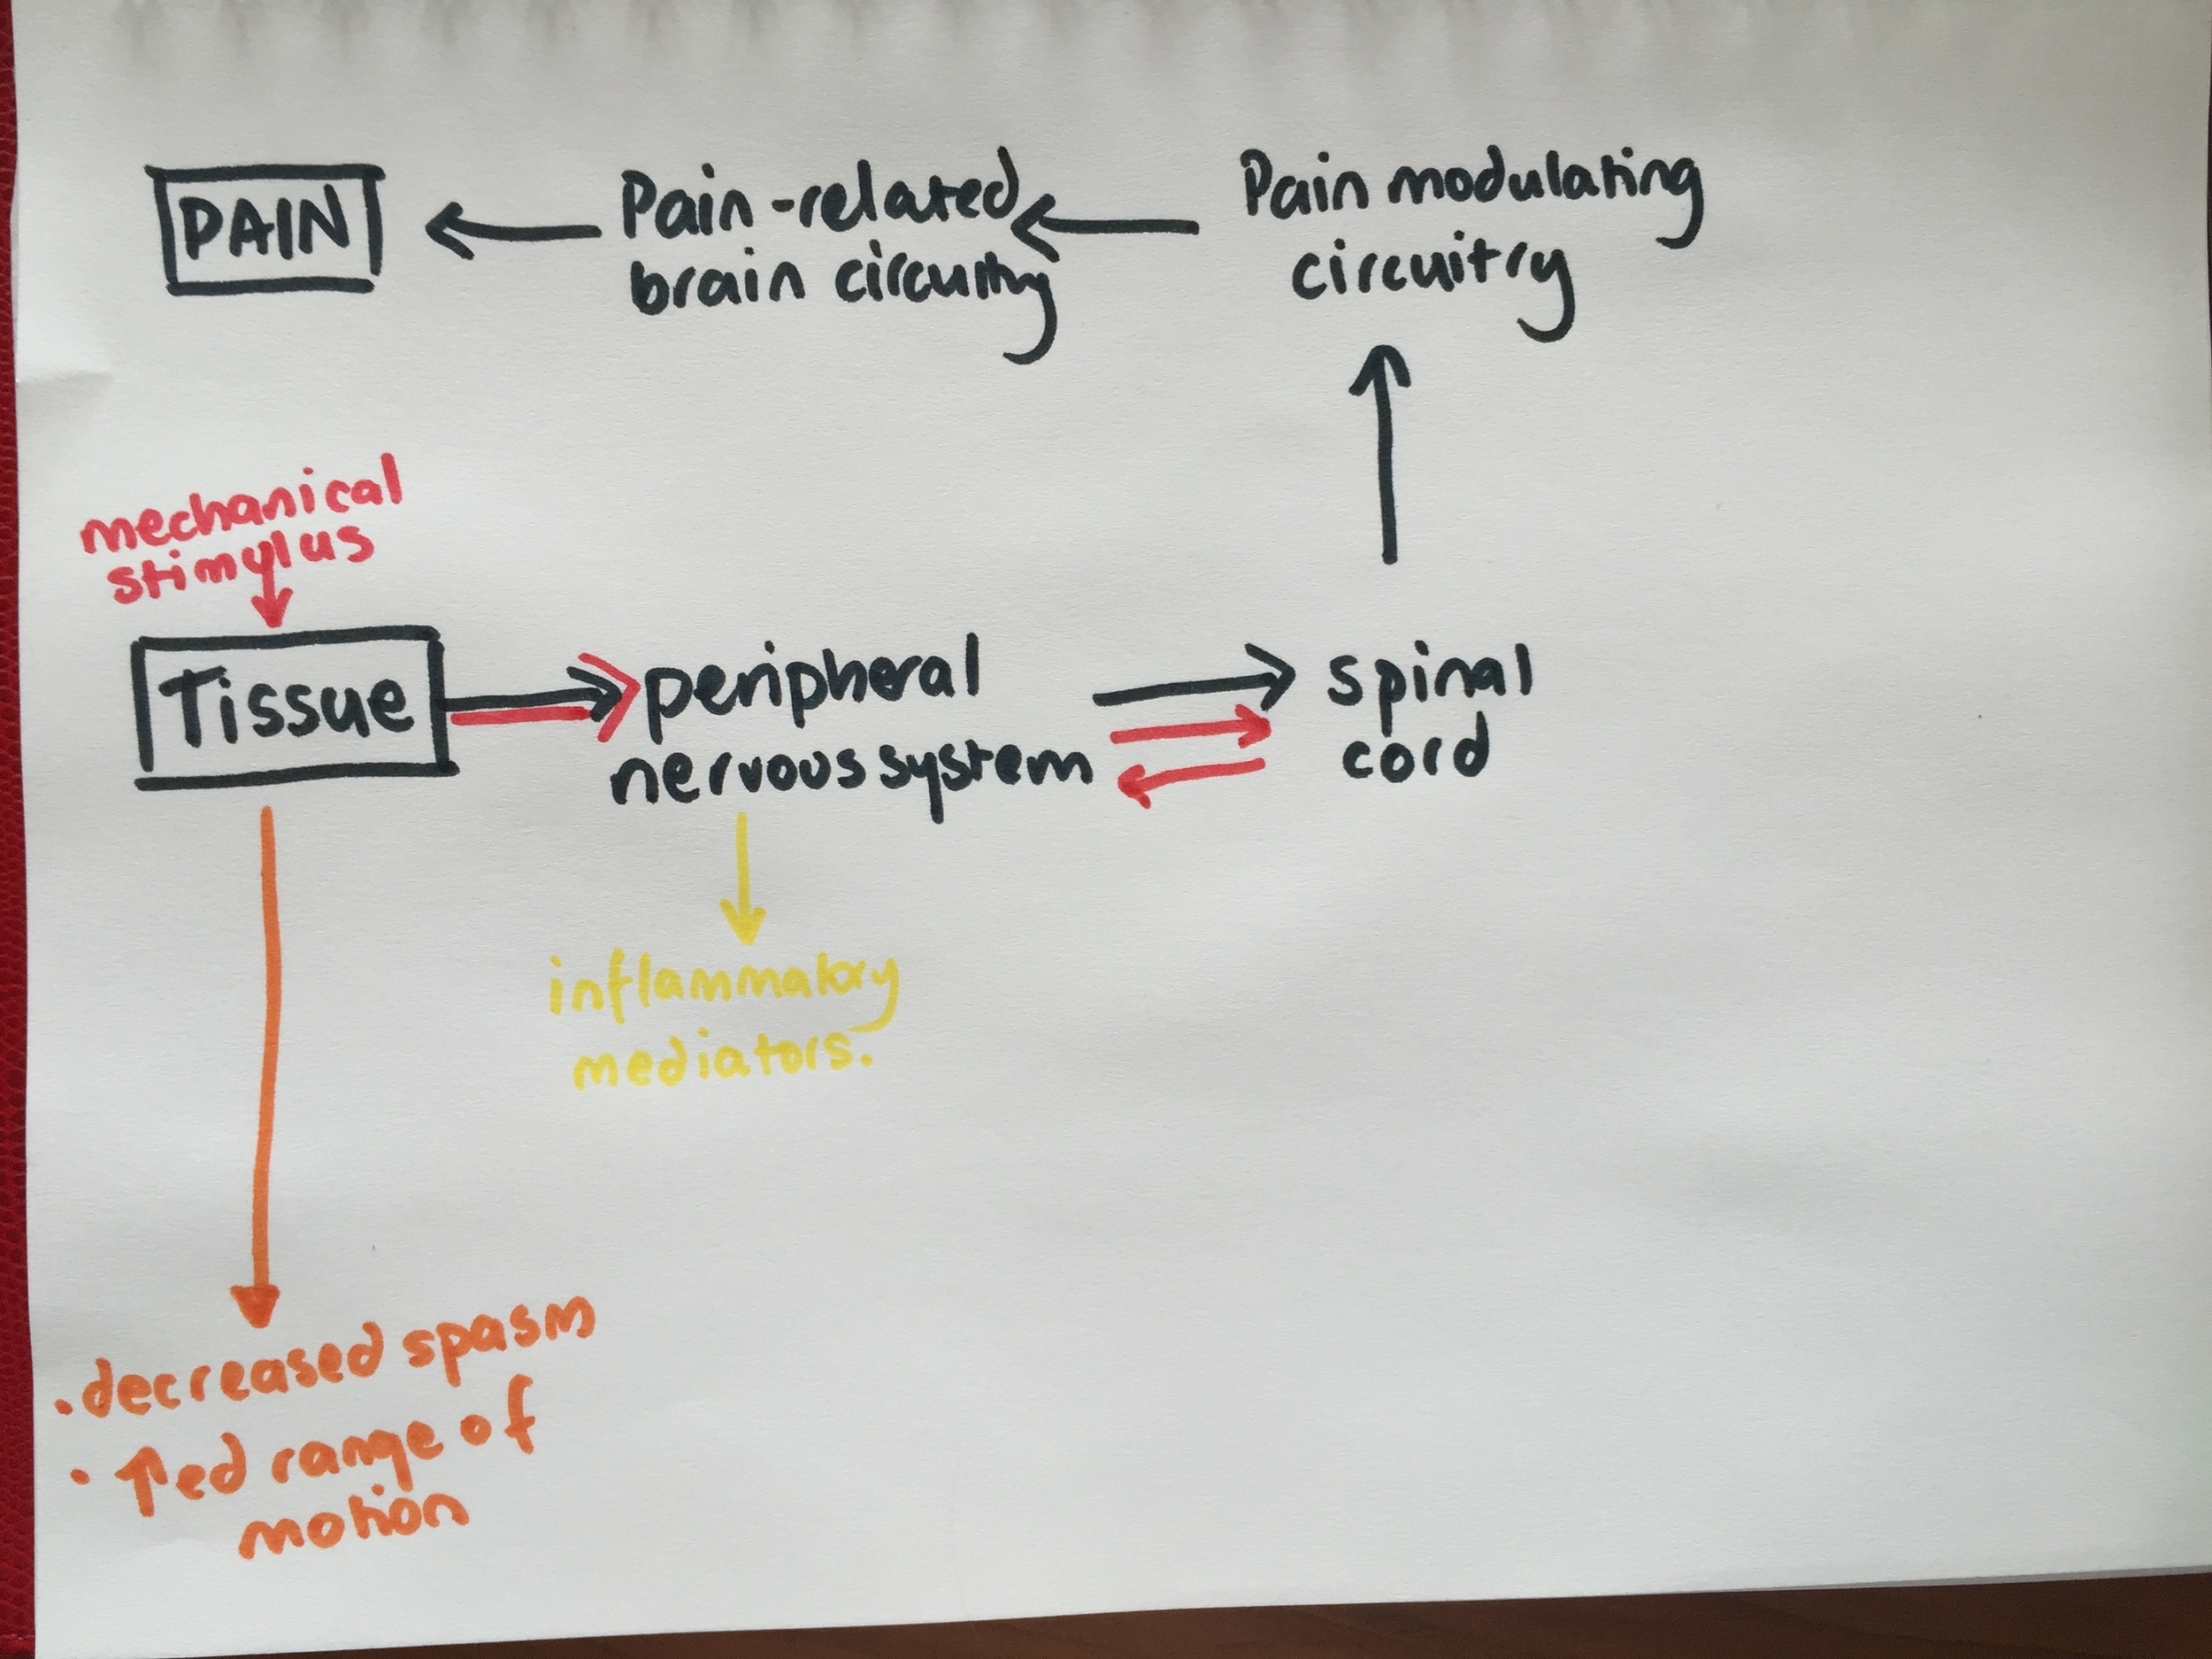 PAIN
Pain-related
brain circuitry
Pain modulating
circuitry
mechanical
stimulus
Tissue
peripheral
nervous system
spinal
cord
inflammatory
mediators.
• decreased spasm
• ↑ed range of
motion